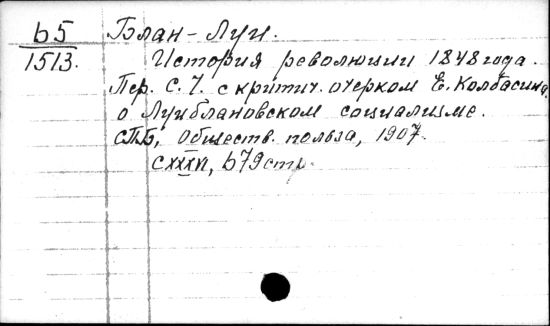 Б5
1513.
Блан-Луи.
История революции 1848 года.
Пер. С. Ч. с критич. очерком Е. Колбасина
о Луиблановском социализме.
СПБ, Обществ. польза, 1907.
579 стр.